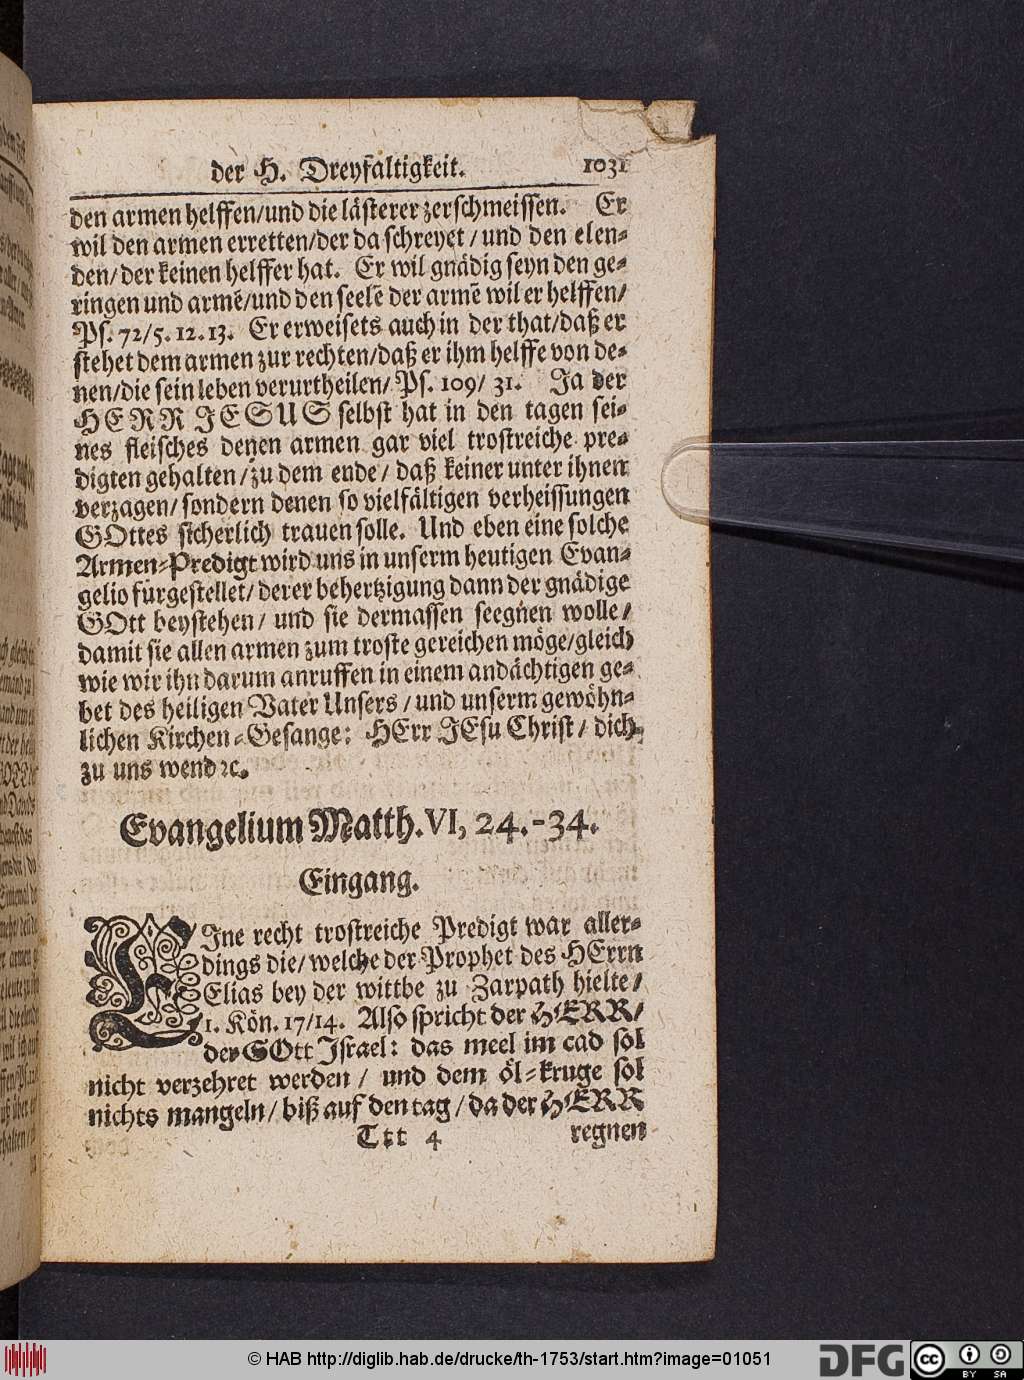 der H. Dreyfaltigkeit. 1031
den armen helffen/und die lästerer zerschmeissen. Er
wil den armen erretten/der da schreyet/und den elen-
den/der keinen helffer hat. Er wil gnädig seyn den ge-
ringen und armē/und den seelē der armē wil er helffen/
Ps. 72/5. 12. 13. Er erweisets auch in der that/daß er
stehet dem armen zur rechten/daß er ihm helffe von de-
nen/die sein leben verurtheilen/Ps. 109/31. Ja der
HERR JESUS selbst hat in den tagen sei-
nes fleisches denen armen gar viel trostreiche pre-
digten gehalten/zu dem ende/daß keiner unter ihnen
verzagen/sondern denen so vielfältigen verheissungen
GOttes sicherlich trauen solle. Und eben eine solche
Armen-Predigt wird uns in unserm heutigen Evan-
gelio fürgestellet/derer behertzigung dann der gnädige
GOtt beystehen/und sie dermassen seegnen wolle/
damit sie allen armen zum troste gereichen möge/gleich
wie wir ihn darum anruffen in einem andächtigen ge-
bet des heiligen Vater Unsers/und unserm gewöhn-
lichen Kirchen-Gesange: HErr JEsu Christ/dich
zu uns wend ꝛc.
Evangelium Matth. VI, 24.-34.
Eingang.
EIne recht trostreiche Predigt war aller-
dings die/welche der Prophet des HErrn
Elias bey der wittbe zu Zarpath hielte/
1. Kön. 17/14. Also spricht der HERR/
der GOtt Israel: das meel im cad sol
nicht verzehret werden/und dem öl-kruge sol
nichts mangeln/biß auf den tag/da der HERR
Ttt 4 regnen
© HAB http://diglib.hab.de/drucke/th-1753/start.htm?image=01051
DFG
cc BY SA